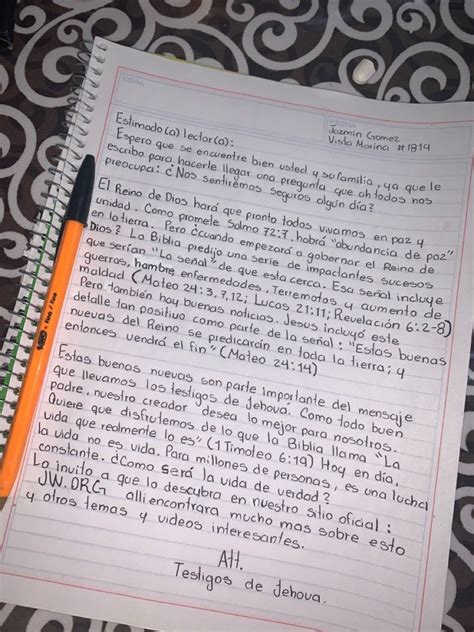 TEMA
FECHA
Jazmin Gomez
Vista Marina #1819
Estimado(a) lector(a):
Espero que se encuentre bien usted y su familia, ya que le
escribo para hacerle llegar una pregunta que ah todos nos
preocupa: ¿Nos sentirémos seguros algún día?
El Reino de Dios hará que pronto todos vivamos en paz y
unidad. Como promete Salmo 72:7, habrá "abundancia de paz"
en la tierra. Pero ¿cuando empezará a gobernar el Reino de
Dios? La Biblia predijo una serie de impactantes sucesos
que serían "La señal" de que esta cerca. Esa señal incluye
guerras, hambre, enfermedades, Terremotos y aumento de
maldad (Mateo 24:3,7,12; Lucas 21:11; Revelación 6:2-8)
Pero también hay buenas noticias. Jesus incluyó este
detalle tan positivo como parte de la señal: "Estas buenas
nuevas del Reino se predicarán en toda la tierra; y
entonces vendrá el fin" (Mateo 24:14)
Estas buenas nuevas son parte importante del mensaje
que llevamos los testigos de Jehová. Como todo buen
padre, nuestro creador desea lo mejor para nosotros.
Quiere que disfrutemos de lo que la Biblia llama "La
vida que realmente lo es" (1 Timoteo 6:19) Hoy en día,
la vida no es vida. Para millones de personas, es una lucha
constante. ¿Como será la vida de verdad?
Lo invito a que lo descubra en nuestro sitio oficial:
JW.ORG alli encontrara mucho mas sobre esto
y otros temas y videos interesantes.
Att.
Testigos de Jehova.